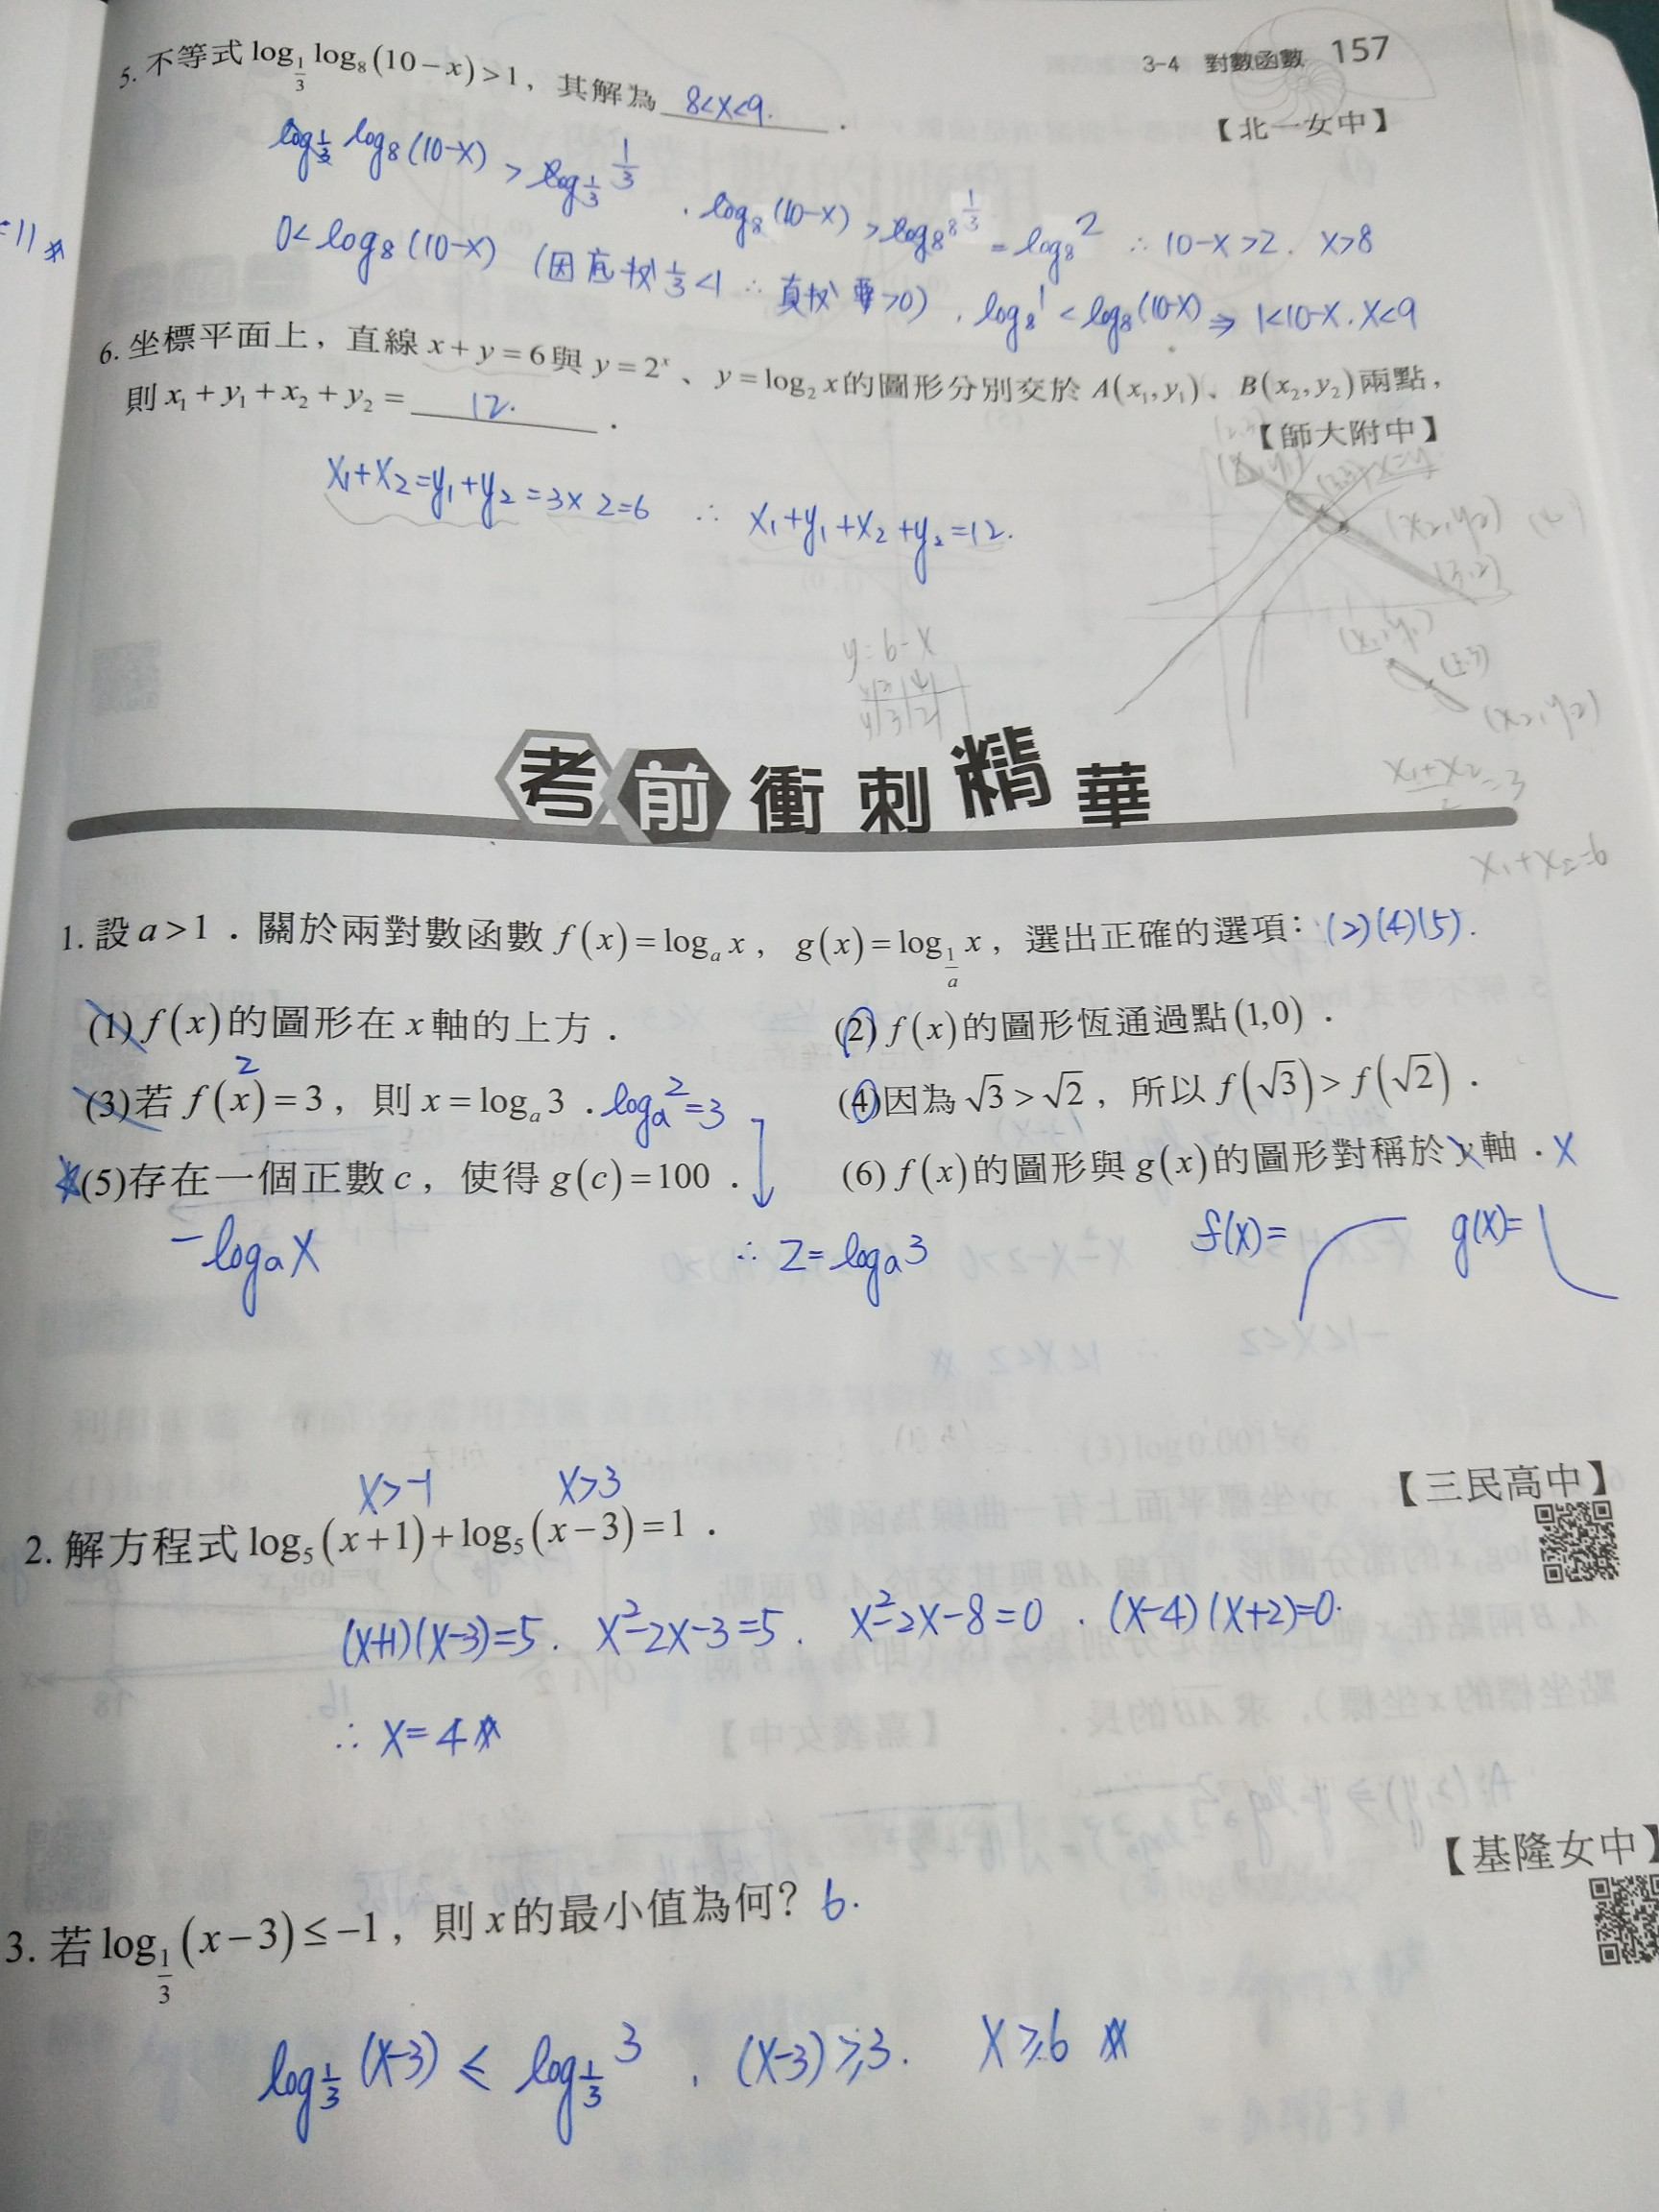 3-4 對數函數 157
5. 不等式 log_{1/3} log_8 (10-x) > 1，其解為 8<x<9.
【北一女中】
log_{1/3} log_8 (10-x) > log_{1/3} 1/3 . log_8 (10-x) > log_8 8^{1/3} = log_8 2 ∴ 10-x >2. x>8
=11
0< log_8 (10-x) (因底 1/3 <1 ∴ 真 >0) . log_8 1 < log_8 (10-x) ⇒ 1<10-x. x<9
6. 坐標平面上，直線 x+y=6 與 y=2^x 、 y=log_2 x 的圖形分別交於 A(x_1,y_1)、B(x_2,y_2) 兩點，
則 x_1+y_1+x_2+y_2 = 12.
【師大附中】
x_1+x_2=y_1+y_2=3×2=6 ∴ x_1+y_1+x_2+y_2=12.
x=y
(x_2,y_2)
y=6-x
(x_2,y_2)
(x_1+x_2)/2=3
x_1+x_2=6
考前衝刺精華
1. 設 a>1．關於兩對數函數 f(x)=log_a x，g(x)=log_{1/a} x，選出正確的選項： (2)(4)(5).
(1) f(x)的圖形在 x 軸的上方． (2) f(x)的圖形恆通過點(1,0)．
2
(3)若 f(x)=3，則 x=log_a 3． log_a 2=3 (4)因為 √3>√2，所以 f(√3)>f(√2)．
(5)存在一個正數 c，使得 g(c)=100． (6) f(x)的圖形與 g(x)的圖形對稱於 y 軸． x
-log_a x ∴ 2=log_a 3 f(x)= g(x)=
【三民高中】
x>-1 x>3
2. 解方程式 log_5 (x+1)+log_5 (x-3)=1．
(x+1)(x-3)=5. x^2-2x-3=5. x^2-2x-8=0 . (x-4)(x+2)=0.
∴ x=4
【基隆女中】
3. 若 log_{1/3} (x-3) ≤ -1，則 x 的最小值為何？ 6.
log_{1/3} (x-3) ≤ log_{1/3} 3 . (x-3)≥3. x≥6